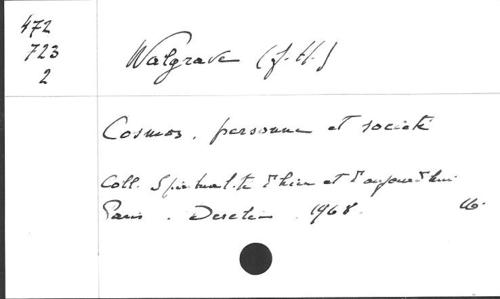 472
723
2
Walgrave (J.-H.)
Cosmos, personne et société
Coll. Spiritualité d'hier et d'aujourd'hui
Paris. Desclée. 1968.